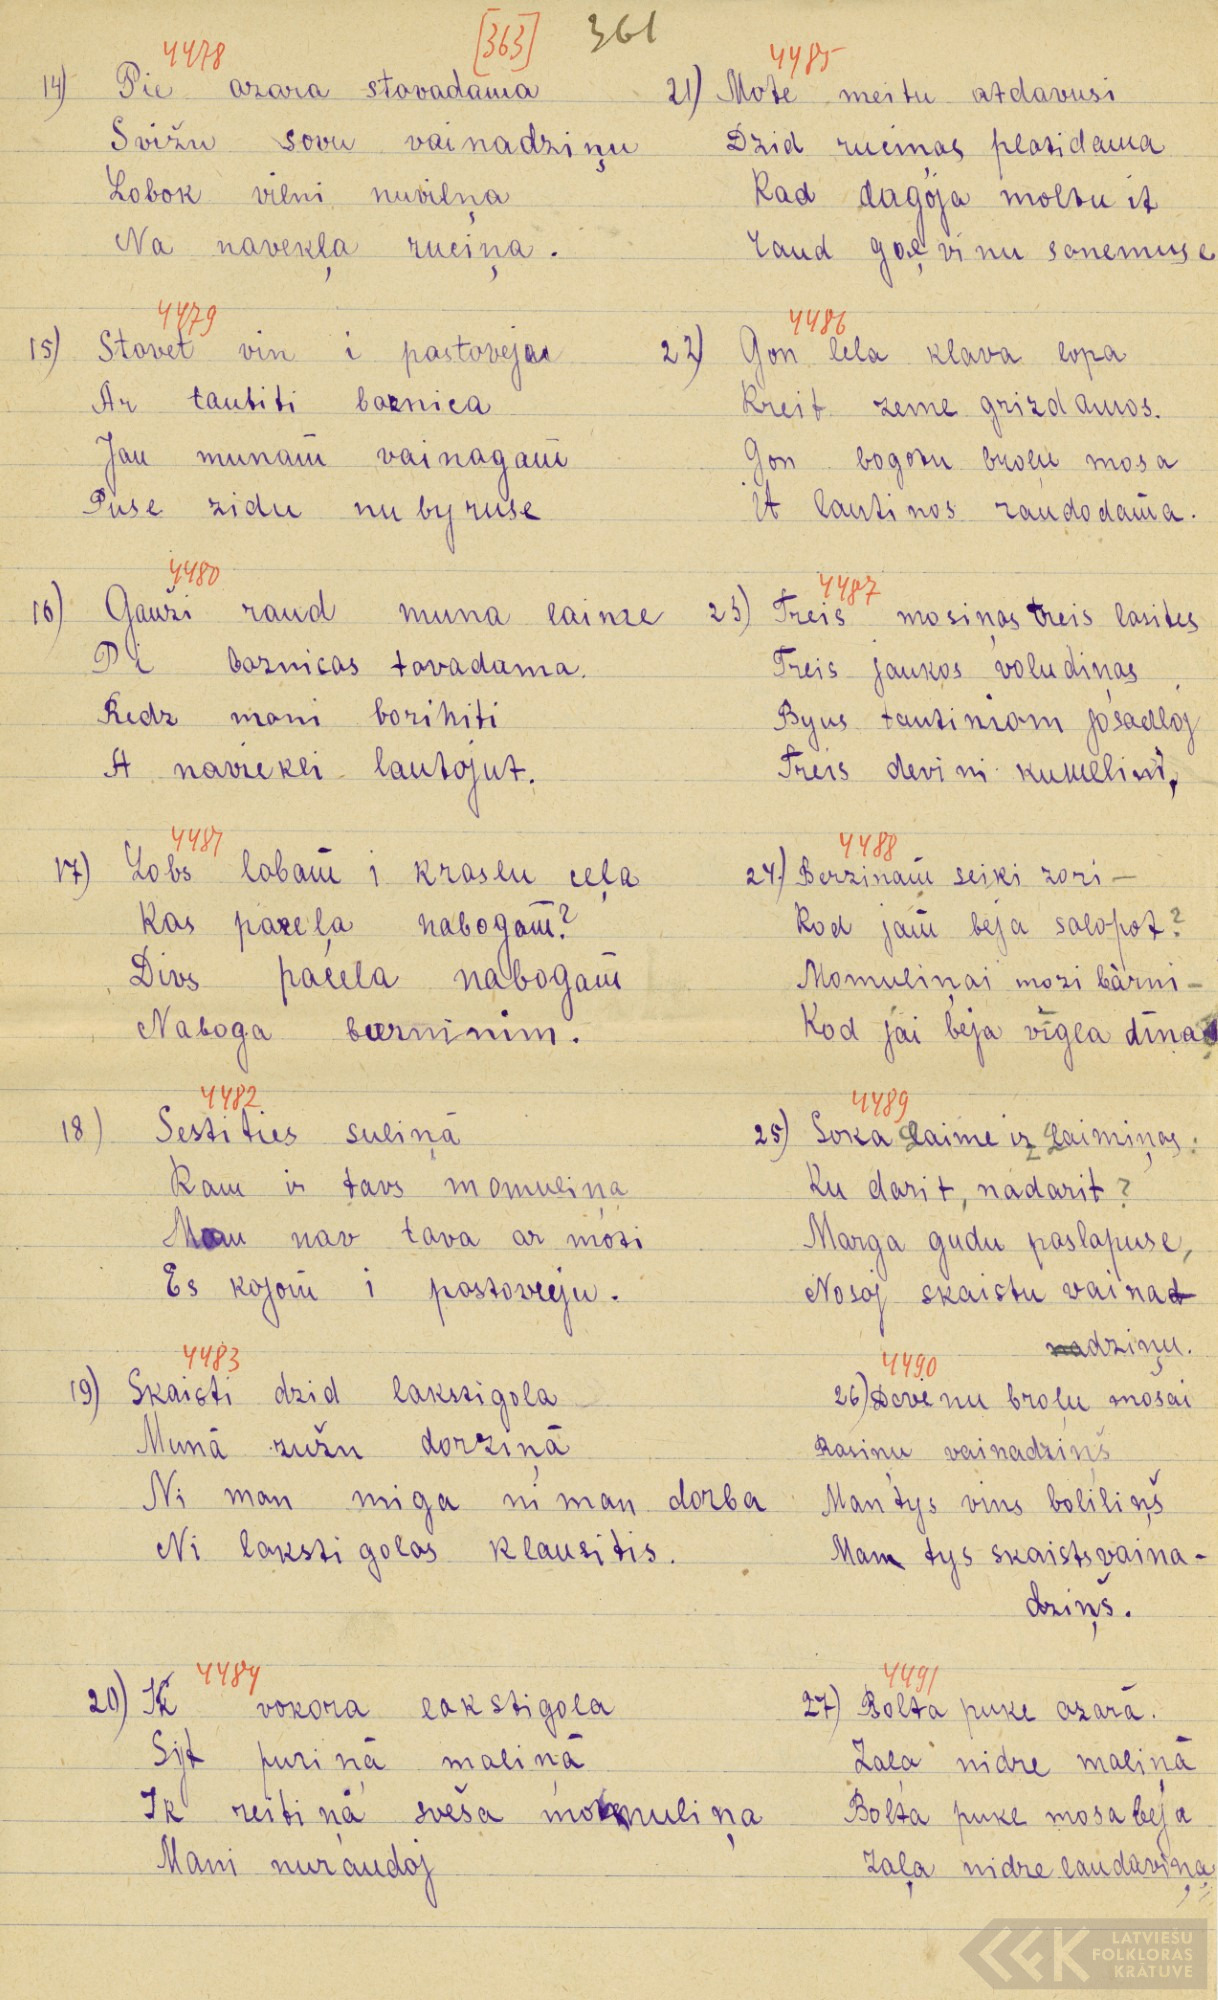 [363] 361
4478
14) Pie azara stovadama
Svižu sovu vainadziņu
Lobok vilni nuvilņa
Na navekļa ruciņa.
4479
15) Stovet vin i pastovejau
Ar tautiti baznica
Jau munam̄ vainagam̄
Puse zidu nu byruse
4480
16) Gauži raud muna laime
Pi baznicas tovadama.
Redz mani borihiti
A naviekli lautojut.
4481
17) Lobs labam̄ i kraslu ceļa
Kas paceļa nabogam̄?
Divs paćela nabogam̄
Naboga berninim.
4482
18) Sestities suliņā
Kam ir tavs momuliņa
Man nav tava ar mósi
Es kojom̄ i postoveju.
4483
19) Skaisti dzid lakstigola
Munā zužu dorziņā
Ni man miga ni man dorba
Ni lakstigolas klausitis.
4484
20) Ik vokora lakstigola
Syt puriņā maliņā
Ik reitiņā sveša momuliņa
Mani nuraudoj
4485
21) Mote meitu atdavusi
Dzid rucinas plasidama
Kad dagója moltu it
Raud golvinu sanemuse
4486
22) Gon lela klava lopa
Kreit zeme grizdamos.
Gon bogotu broļu mosa
It lautinos raudodam̄a.
4487
23) Treis mosiņas treis lasites
Treis jaukos voludiņas
Byus tautiniom jósadloj
Treis devini kumelini,
4488
24) Berzinam̄ seiki zori –
Kod jam̄ beja salopot?
Momuliņai mozi bārni –
Kod jai beja vīgla dīna
4489
25) Soka Laime iz Laimiņas:
Ku darit, nadarit?
Marga gudu paslapuse,
Nosoj skaistu vainad
nadziņu.
4490
26) Devinu broļu mósai
Rasinu vainadziņš
Man tys vins boliliņš
Mam tys skaists vaina-
dziņš.
4491
27) Bolta puke azarā.
Zaļa nidre maliņā
Bolta puke mosa beja
Zaļa nidre laudaviņa
LATVIEŠU
FOLKLORAS
KRĀTUVE